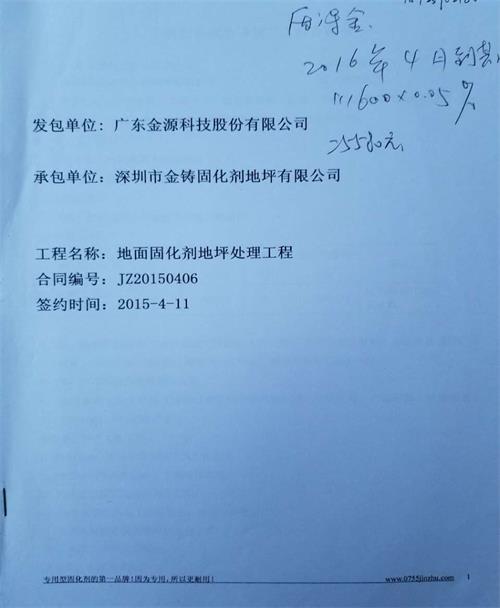 2016年4月到期
111600×0.05%
=5580元
发包单位: 广东金源科技股份有限公司
承包单位: 深圳市金铸固化剂地坪有限公司
工程名称: 地面固化剂地坪处理工程
合同编号: JZ20150406
签约时间: 2015-4-11
专用型固化剂的第一品牌!因为专用,所以更耐用! www.0755jinzhu.com 1